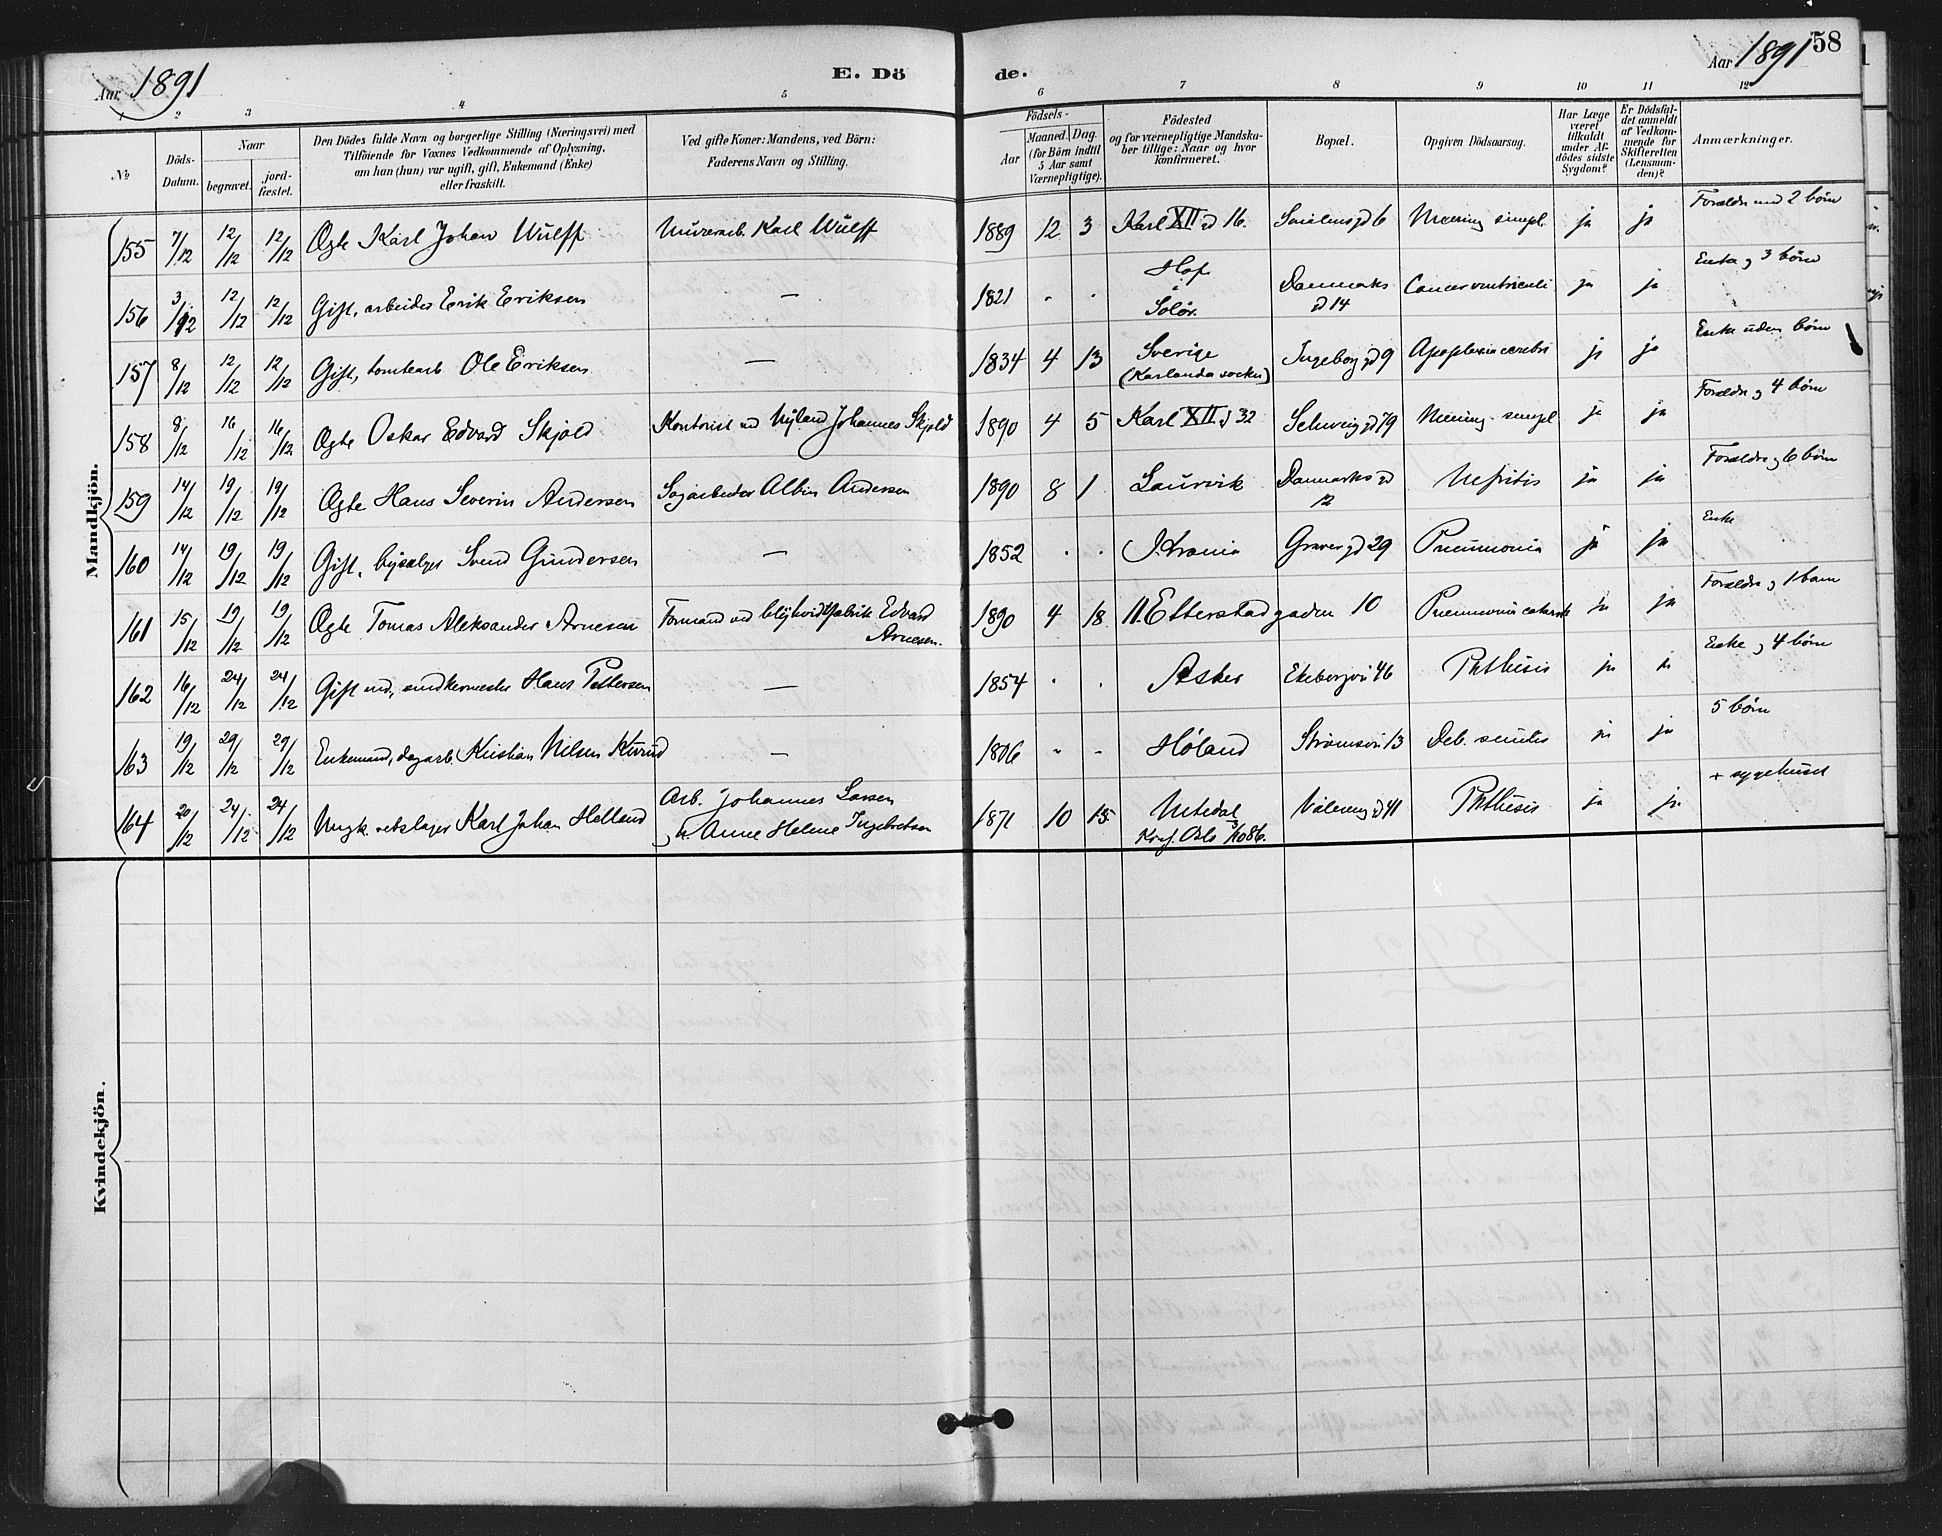 Aar 1891
E. Dö
de.
Aar 1891
58
1 2 3 4 5 6 7 8 9 10 11 12
No
Döds-
Datum.
Naar
begravet.
jord-
fæstet.
Den Dödes fulde Navn og borgerlige Stilling (Næringsvei) med
Tilföiende for Voxnes Vedkommende af Oplysning,
om han (hun) var ugift, gift, Enkemand (Enke)
eller fraskilt.
Ved gifte Koner: Mandens, ved Börn:
Faderens Navn og Stilling.
Födsels-
Aar
Maaned.
Dag.
(for Börn indtil
5 Aar samt
Værnepligtige).
Födested
og for værnepligtige Mandska-
ber tillige: Naar og hvor
konfirmeret.
Bopæl.
Opgiven Dödsaarsag.
Har Læge
været
tilkaldt
under Af-
dödes sidste
Sygdom?
Er Dödsfal-
det anmeldt
af Vedkom-
mende for
Skifteretten
(Lensman-
den)?
Anmærkninger.
Mandkjön.
155 7/12 12/12 12/12 Ægte Karl Johan Wulff Murerarb. Karl Wulff 1889 12 3 Karl XII gd 16. 6 ja ja Forældre med 2 børn
156 3/12 12/12 12/12 Gift, arbeider Erik Eriksen — 1821 . . Hof i Solør. Danmarks gd 14 Cancer ventriculi ja ja Enke og 3 børn
157 8/12 12/12 12/12 Gift, tomtearb Ole Eriksen — 1834 4 13 Sverige (Karlanda socken) Ingeborg gd 9 Apoplexia cerebri ja ja Enke uden børn
158 8/12 16/12 16/12 Ægte Oskar Edvard Skjold Kontorist ved Nyland Johannes Skjold 1890 4 5 Karl XII gd 32 Schweig gd 79 Mening. simpl ja ja Forældre og 4 børn
159 14/12 19/12 19/12 Ægte Hans Severin Andersen Sagarbeider Albin Andersen 1890 8 1 Laurvik Danmarks gd 12 Nefritis ja ja Forældre og 6 børn
160 14/12 19/12 19/12 Gift, Svend Gundersen — 1852 . . Graver gd 29 Pneumonia ja ja Enke
161 15/12 19/12 19/12 Ægte Tomas Aleksander Arnesen Formand ved blyhvidtfabrik Edvard Arnesen. 1890 4 18 N. Etterstadgaden 10 Pneumonia catarrh ja ja Forældre og 1 barn
162 16/12 24/12 24/12 Gift Hans Pettersen — 1854 . . Asker Ekebergvn 46 Phthisis ja ja Enke og 4 børn
163 19/12 29/12 29/12 Enkemand, dagarb. Kristian Nilsen Kurud — 1806 - - Høland Strømsvn 13 Deb. senilis ja ja 5 børn
164 20/12 24/12 24/12 Ungk. rebslager Karl Johan Helland Arb. Johannes Larsen
h. Anne Helene Ingebretsen 1871 10 15 Nitedal
Konf. Oslo 3/10 86. Vålereng gd 41 Phthisis ja ja + sygehuset
Kvindekjön.